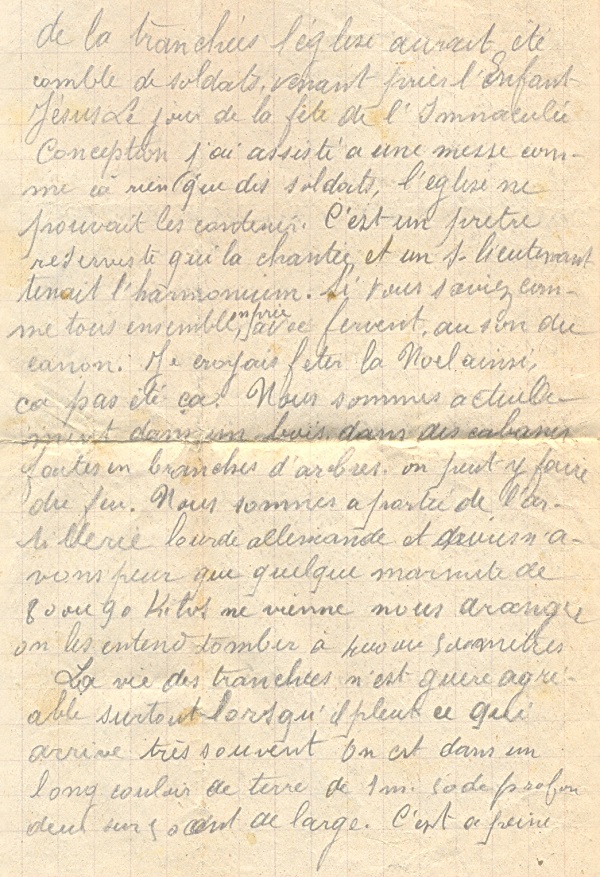 de la tranchées l'église aurait été
comble de soldats, venant prier l'Enfant
Jésus Le jour de la fête de l'Immaculée
Conception j'ai assisté a une messe com-
me ça rien que des soldats, l'église ne
pouvait les contenir. C'est un prêtre
reserviste qui la chantée et un s-lieutenant
tenait l'harmonium. Si vous saviez com-
me tous ensemble, on prie avec fervent, au son du
canon. Je croyais feter la Noel ainsi,
ça pas été ça. Nous sommes actuelle-
ment dans un bois, dans des cabanes
faites en branches d'arbres. on peut y faire
du feu. Nous sommes a portée de l'ar-
tillerie lourde allemande et n'a-
vons peur que quelque marmite de
80 ou 90 Kilos ne vienne nous drange
on les entend tomber à 400 ou 500 mètres
La vie des tranchées n'est guère agré-
able surtout lorsqu'il pleut ce qui
arrive très souvent On est dans un
long couloir de terre de 1m. 50 de profon
deur sur 50 de large. C'est a peine